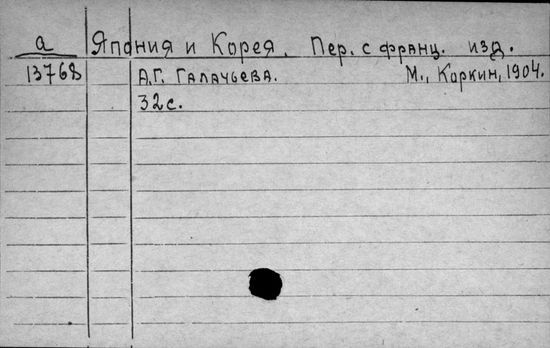 а Япония и Корея. Пер. с франц. изд.
13768 А.Г. Галачьева. М., Коркин, 1904.
32 с.